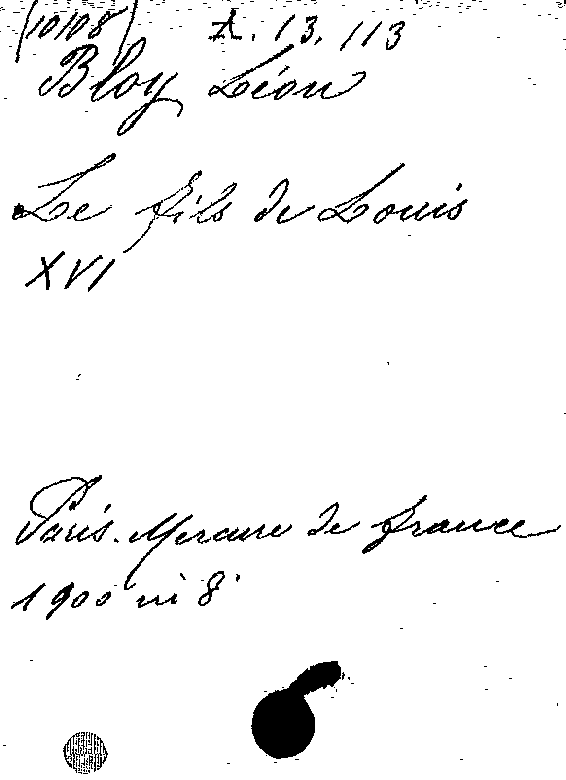 (10108) A. 13. 113
Bloy Léon
Le fils de Louis
XVI
Paris. Mercure de France
1900 in 8°